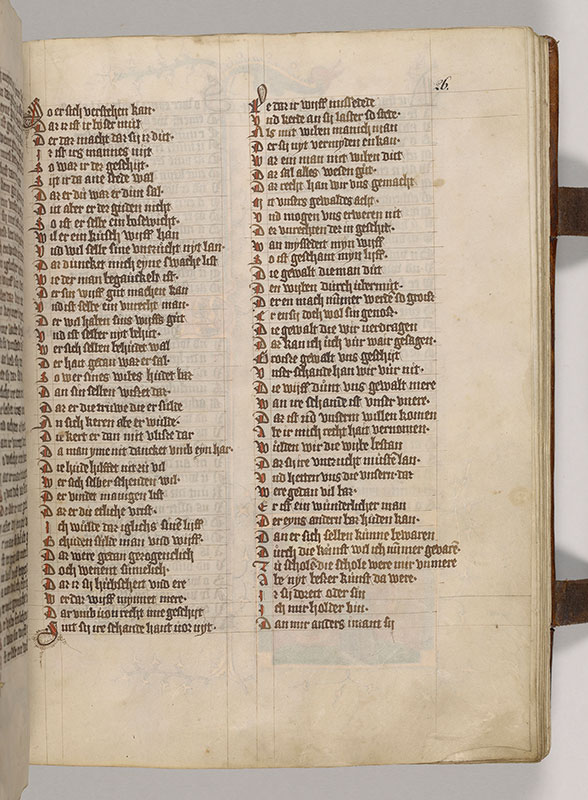 26.
Wo er sich verstehen kan·
Dar ir ist ir boser mut
Der dar macht dar sij ir dut·
Ir ist irs mannes nyt
So war ir der geschyt·
Dar er du war er dun sal·
Dut aber er der guden nicht
So ist er selbe ein bosewicht·
Wil er ein kusch wyff han
Vnd wil selbe sine vntzucht nyt lan·
Dar duncket mich eyne swache list
Wie der man begauckelt ist·
Der sin wyff gut machen kan
Vnd ist selbe ein vnrecht man·
Der wil haben sins wyffs gut
Vnd ist selber nyt behut·
Wer sich selben behudet wal
Der hait getan war er sal·
So wer sines wibes hudet bar
Dan sin selben
Dar er die truwe die er solde
An sich keren abe er wulde·
Die kert er dan mit vlisse dar
Da man yme nit dancket vmb eyn har·
Die hude hilffet nit zu vil
Wer sich selber schenden wil·
Der vindet manigen list
Dar er die erliche vrist·
Ich wulde dar iglichs sine lyff
Behuden solde man vnd wyff·
Dar were getan getzogenclich
Doch wenent sumelich·
Dar ir sij hubscheit vnd ere
Wer dar wyff nymmet mere·
Dar vmb von recht ine geschyt
Sint sij ire schande hant vor nyt·
Ye dar ir wyff missedede
Vnd kerte an sij laster so stede·
Als mit wilen manich man
Der sij nyt vermyden en kan·
War ein man mit wilen dut
Dar sal alles wesen gut·
Dar recht han wir vns gemacht
Mit vnsers gewaldes acht·
Vnd mogen vns erweren nit
Der vnrechten der in geschit·
Wan myssedet myn wyff
So ist geschant myn lyff·
Die gewalt die man dut
Den wyben durch vbermut·
Der en mach nummer werde so groisz
Er en sij doch wol sin genosz·
Die gewalt die wir verdragen
Dar kan ich uch vor wair gesagen·
Groisze gewalt vns geschyt
Vnser schande han wir vur nit·
Die wyff dunt vns gewalt mere
Wan ire schande ist vnser vnere·
Dar ist an vnsern willen komen
Abe ir mich recht hait vernomen·
Wulden wir die wybe lestan
Dar sij ire vntzucht musten lan·
Vnd hetten vns die vnsern dar
Were getan vil bar·
Er ist ein wunderlicher man
Der eyns andern bar huden kan·
Dan er sich selben kunne bewaren
Durch die kunst wil ich nummer gebaren·
Zu schole die schole were mir vnmere
Abe nyt besser kunst da were·
Ir sij doreit oder sin
Ich mir holder bin·
Dan mir anders imant sij